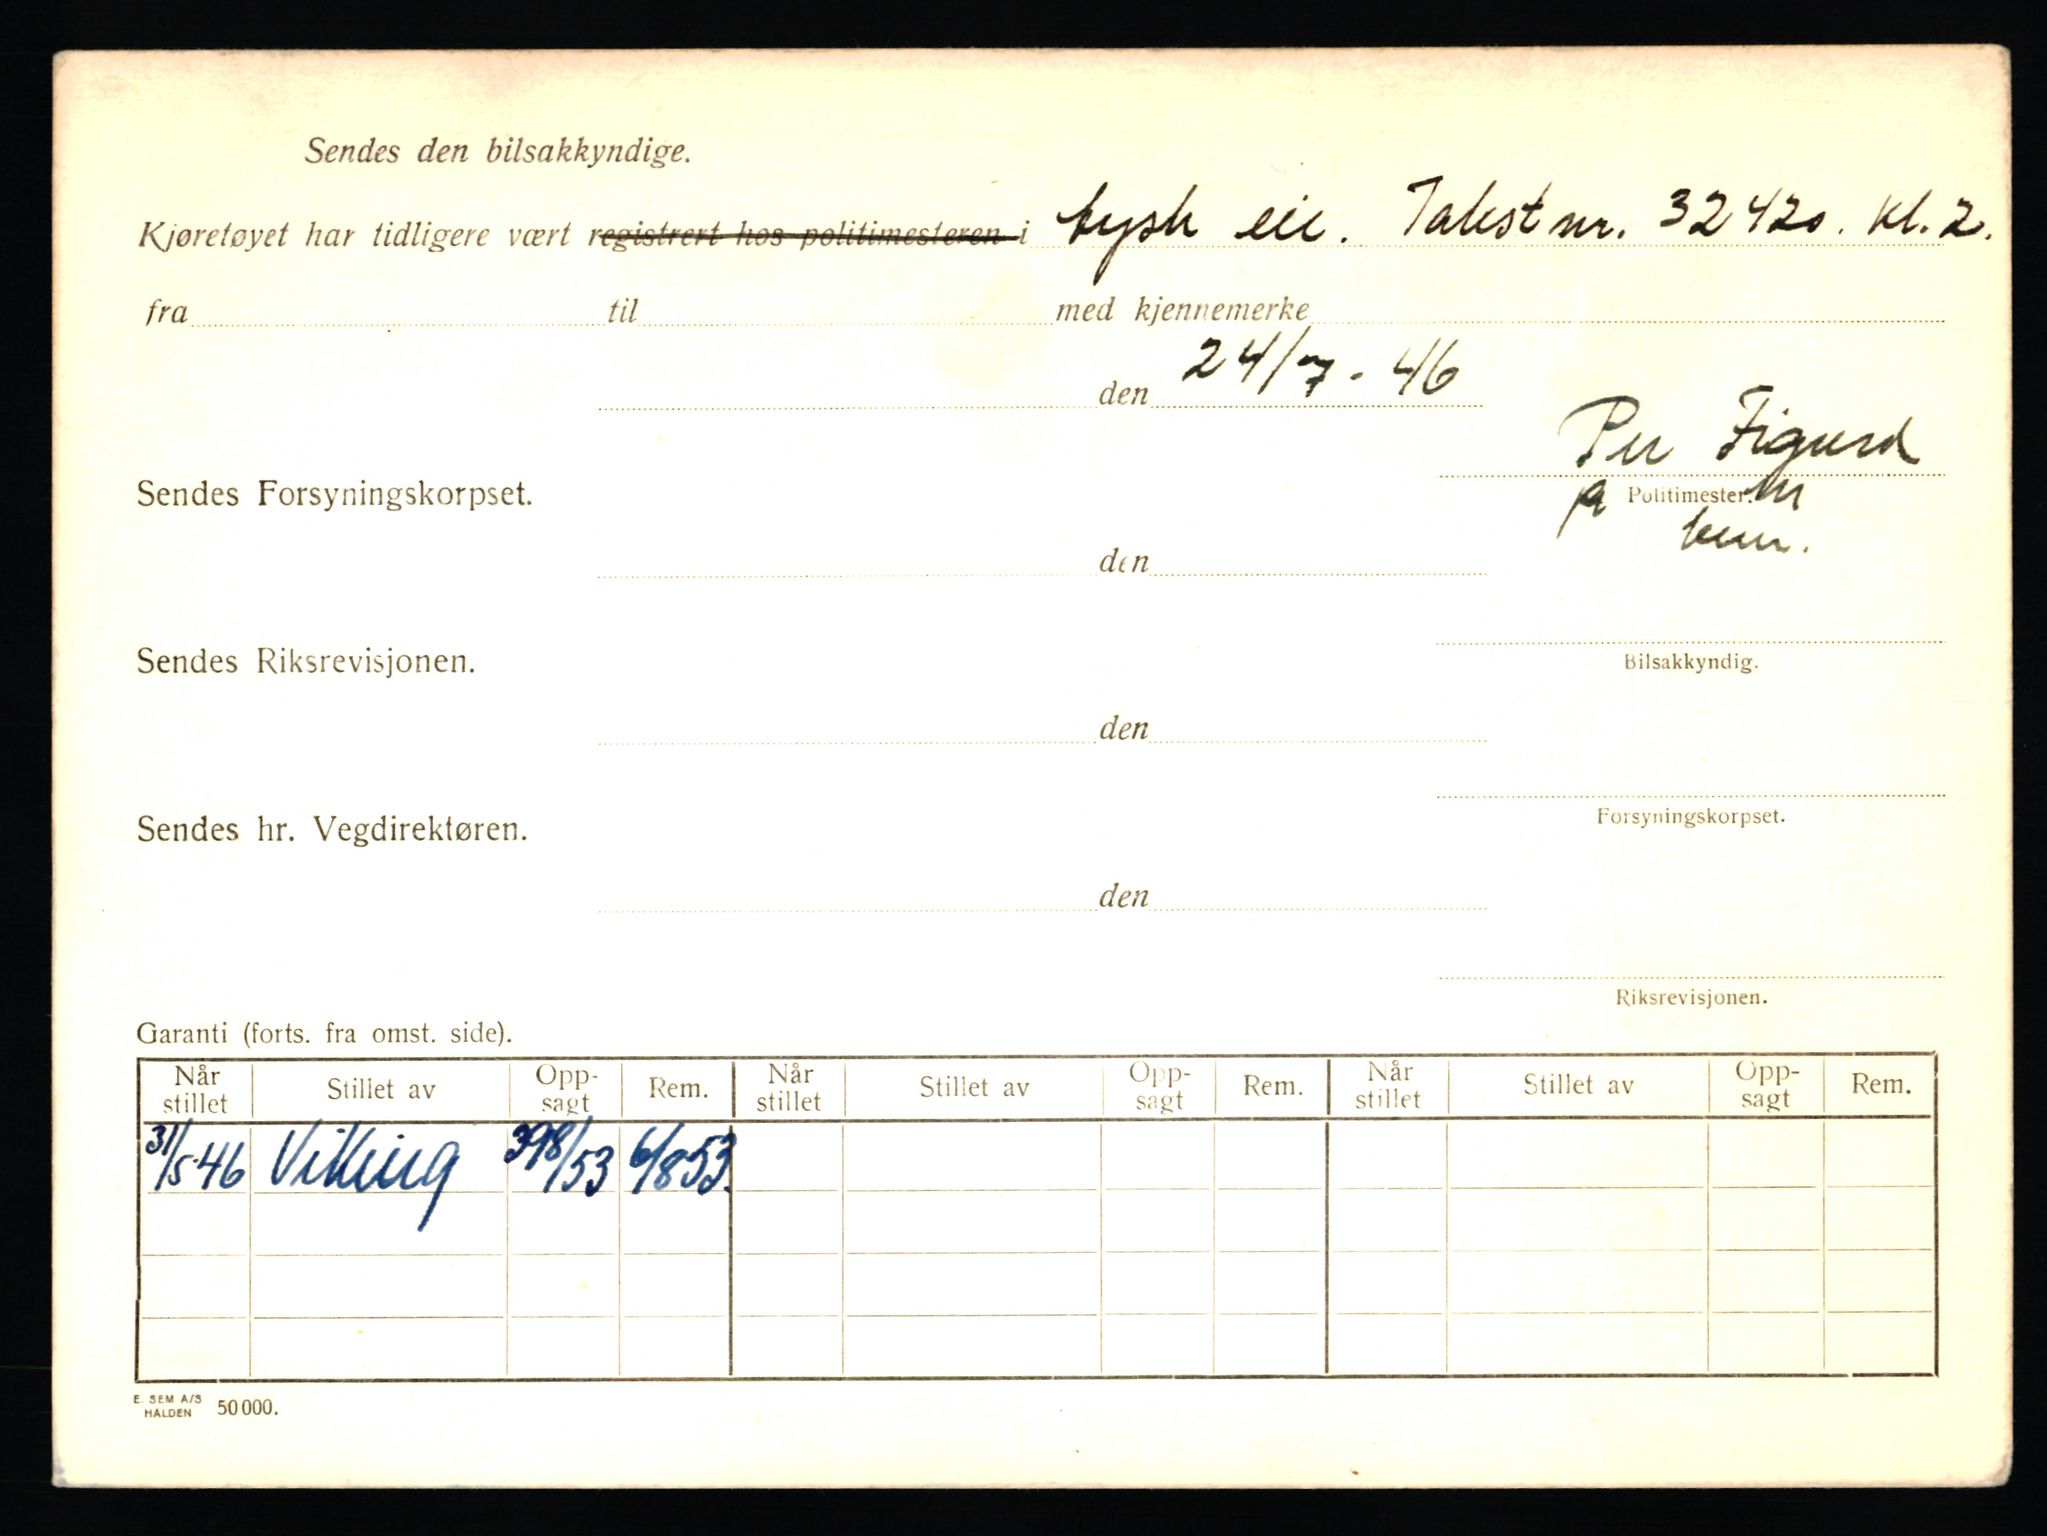 Sendes den bilsakkyndige.
Kjøretøyet har tidligere vært registrert hos politimesteren i tysk eie. Takst nr. 32420. Kl. 2.
fra til med kjennemerke
den 24/7 - 46
Per Sigurd
Sendes Forsyningskorpset.
Politimester.
den
Sendes Riksrevisjonen.
Bilsakkyndig.
den
Forsyningskorpset.
Sendes hr. Vegdirektøren.
den
Riksrevisjonen.
Garanti (forts. fra omst. side).
Når stillet Stillet av Opp-sagt Rem. Når stillet Stillet av Opp-sagt Rem. Når stillet Stillet av Opp-sagt Rem.
31/5-46 Viking 398/53 6/8 53.
E. SEM A/S
HALDEN 50 000.